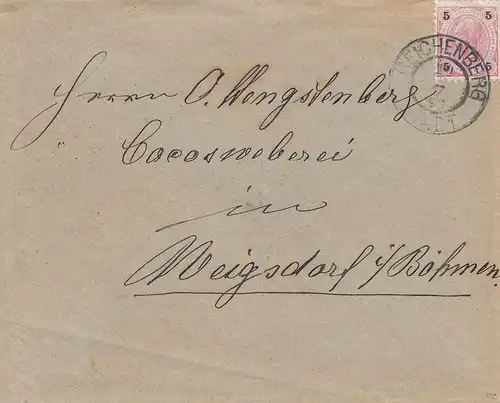 5 5
REICHENBERG
5 5
STADT
Herrn O. Hengstenberg
" Cocosweberei
in
Weigsdorf i/Böhmen